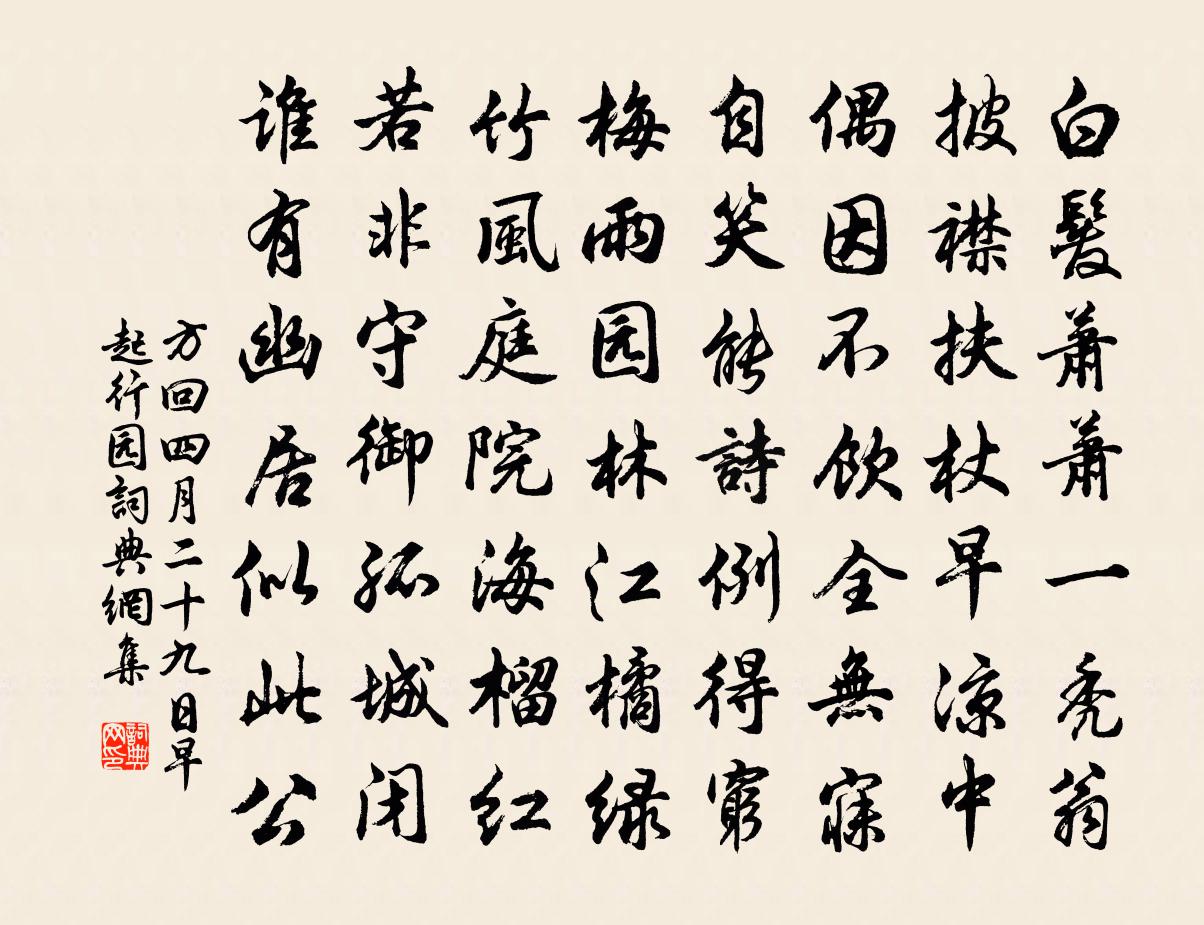 白髮蕭蕭一禿翁
披襟扶杖早涼中
偶因不飲全無寐
自笑能詩例得窮
梅雨园林江橘绿
竹風庭院海榴红
若非守御孤城闭
谁有幽居似此公
方回四月二十九日早
起行园詞典網集
詞典
网印